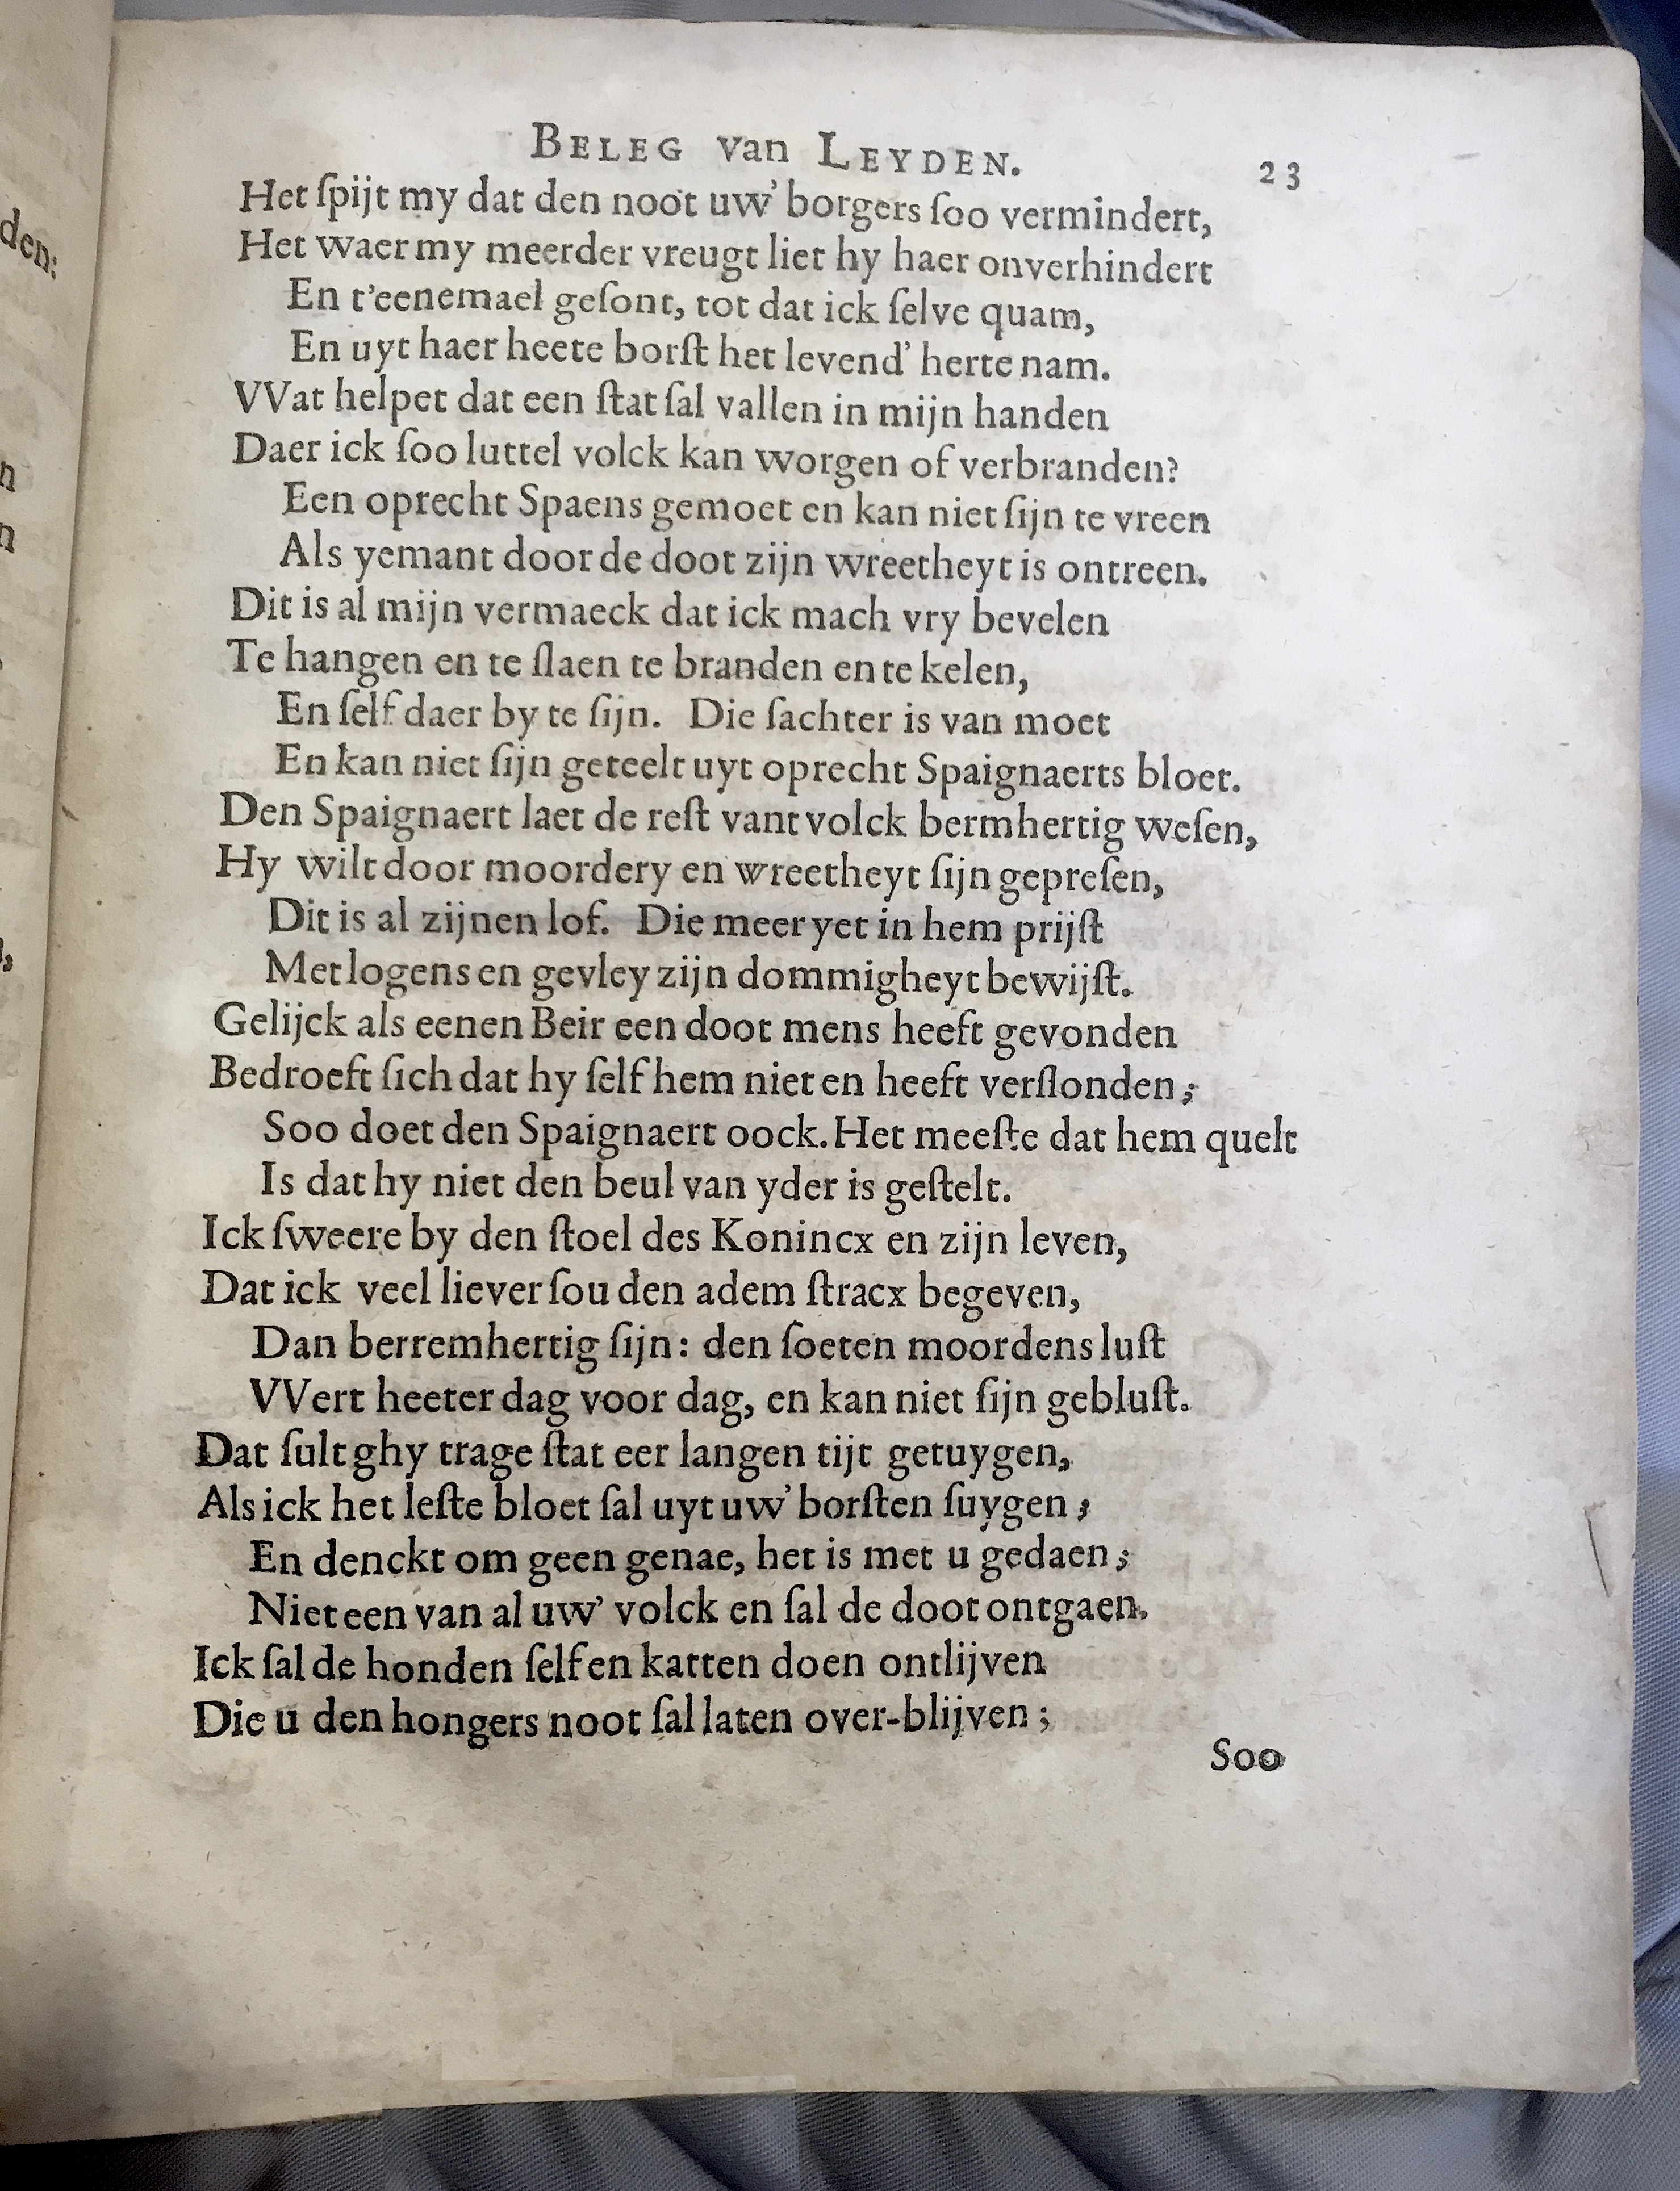 BELEG van LEYDEN. 23
Het ſpijt my dat den noot uw' borgers ſoo vermindert,
Het waer my meerder vreugt liet hy haer onverhindert
En t'eenemael geſont, tot dat ick ſelve quam,
En uyt haer heete borſt het levend' herte nam.
VVat helpet dat een ſtat ſal vallen in mijn handen
Daer ick ſoo luttel volck kan worgen of verbranden?
Een oprecht Spaens gemoet en kan niet ſijn te vreen
Als yemant door de doot zijn wreetheyt is ontreen.
Dit is al mijn vermaeck dat ick mach vry bevelen
Te hangen en te ſlaen te branden en te kelen,
En ſelf daer by te ſijn. Die ſachter is van moet
En kan niet ſijn geteelt uyt oprecht Spaignaerts bloet.
Den Spaignaert laet de reſt vant volck bermhertig weſen,
Hy wilt door moordery en wreetheyt ſijn gepreſen,
Dit is al zijnen lof. Die meer yet in hem prijſt
Met logens en gevley zijn dommigheyt bewijſt.
Gelijck als eenen Beir een doot mens heeft gevonden
Bedroeft ſich dat hy ſelf hem niet en heeft verſlonden;
Soo doet den Spaignaert oock. Het meeſte dat hem quelt
Is dat hy niet den beul van yder is geſtelt.
Ick ſweere by den ſtoel des Konincx en zijn leven,
Dat ick veel liever ſou den adem ſtracx begeven,
Dan berremhertig ſijn: den ſoeten moordens luſt
VVert heeter dag voor dag, en kan niet ſijn gebluſt.
Dat ſult ghy trage ſtat eer langen tijt getuygen,
Als ick het leſte bloet ſal uyt uw' borſten ſuygen;
En denckt om geen genae, het is met u gedaen;
Niet een van al uw' volck en ſal de doot ontgaen.
Ick ſal de honden ſelf en katten doen ontlijven
Die u den hongers noot ſal laten over-blijven;
Soo
den:
n
n